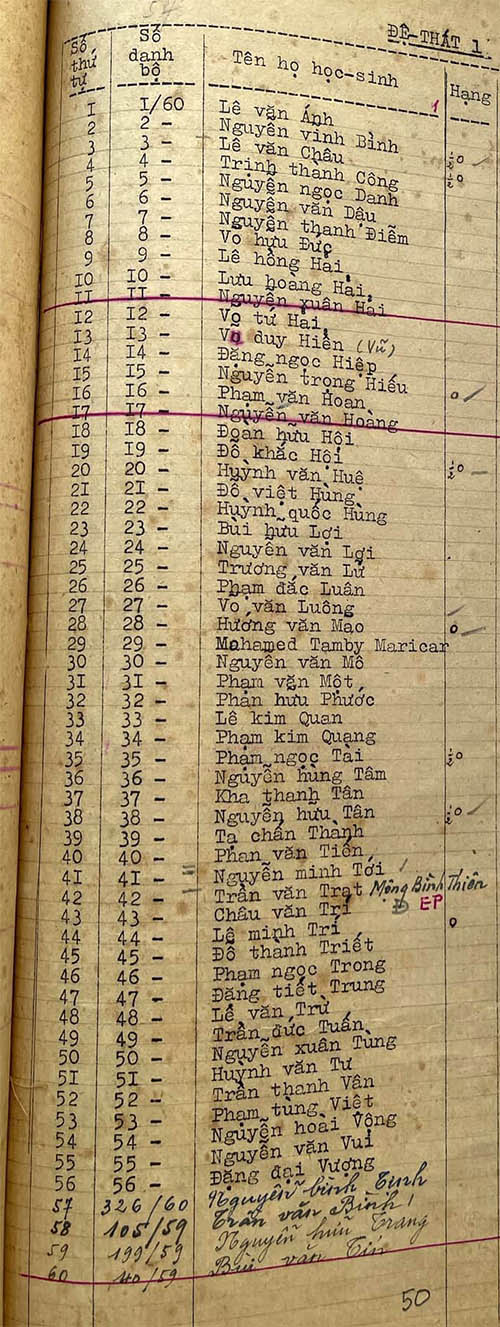 ĐỆ-THẤT 1
Số thứ tự Số danh bộ Tên họ học-sinh Hạng
1
I I/60 Lê văn Ánh
2 2 - Nguyễn vĩnh Bình
3 3 - Lê văn Châu ½0
4 4 - Trịnh thành Công ½0
5 5 - Nguyễn ngọc Danh
6 6 - Nguyễn văn Dậu
7 7 - Nguyễn thanh Điễm
8 8 - Vỏ hưu Đức
9 9 - Lê hồng Hải
IO IO - Lưu hoàng Hải
II II - Nguyễn xuân Hải
I2 I2 - Võ tứ Hải
I3 I3 - Võ duy Hiền (Vũ)
I4 I4 - Đặng ngọc Hiệp
I5 I5 - Nguyễn trọng Hiếu
I6 I6 - Phạm văn Hoan 0
I7 I7 - Nguyễn văn Hoàng
I8 I8 - Đoàn hữu Hội
I9 I9 - Đỗ khắc Hội
20 20 - Huỳnh văn Huệ ½0
2I 2I - Đỗ việt Hùng
22 22 - Huỳnh quốc Hùng
23 23 - Bùi hữu Lợi
24 24 - Nguyễn văn Lợi
25 25 - Trương văn Lử
26 26 - Phạm đắc Luân
27 27 - Vo văn Luông
28 28 - Hướng văn Mạo 0
29 29 - Mohamed Tamby Maricar
30 30 - Nguyễn văn Mô
3I 3I - Phạm văn Một
32 32 - Phan hưu Phước
33 33 - Lê kim Quan
34 34 - Phạm kim Quang
35 35 - Phạm ngọc Tài ½0
36 36 - Nguyễn hùng Tâm
37 37 - Kha thanh Tân
38 38 - Nguyễn hưu Tân ½0
39 39 - Tạ chấn Thanh
40 40 - Phan văn Tiến
4I 4I - Nguyễn minh Tới
42 42 - Trần văn Trạt Mộng Bình Thiên
43 43 - Châu văn Trí Đ EP
44 44 - Lê minh Trí 0
45 45 - Đỗ thành Triết
46 46 - Phạm ngọc Trong
47 47 - Đặng tiết Trung
48 48 - Lê văn Trừ
49 49 - Trần đức Tuấn
50 50 - Nguyễn xuân Tùng
5I 5I - Huỳnh văn Tư
52 52 - Trần thanh Vân
53 53 - Phạm tùng Việt
54 54 - Nguyễn hoài Vọng
55 55 - Nguyễn văn Vui
56 56 - Đặng đại Vượng
57 326/60 Nguyễn bình Tinh
58 105/59 Trần văn Bình
59 199/59 Nguyễn hữu Trang
60 40/59 Bùi văn Tín
50